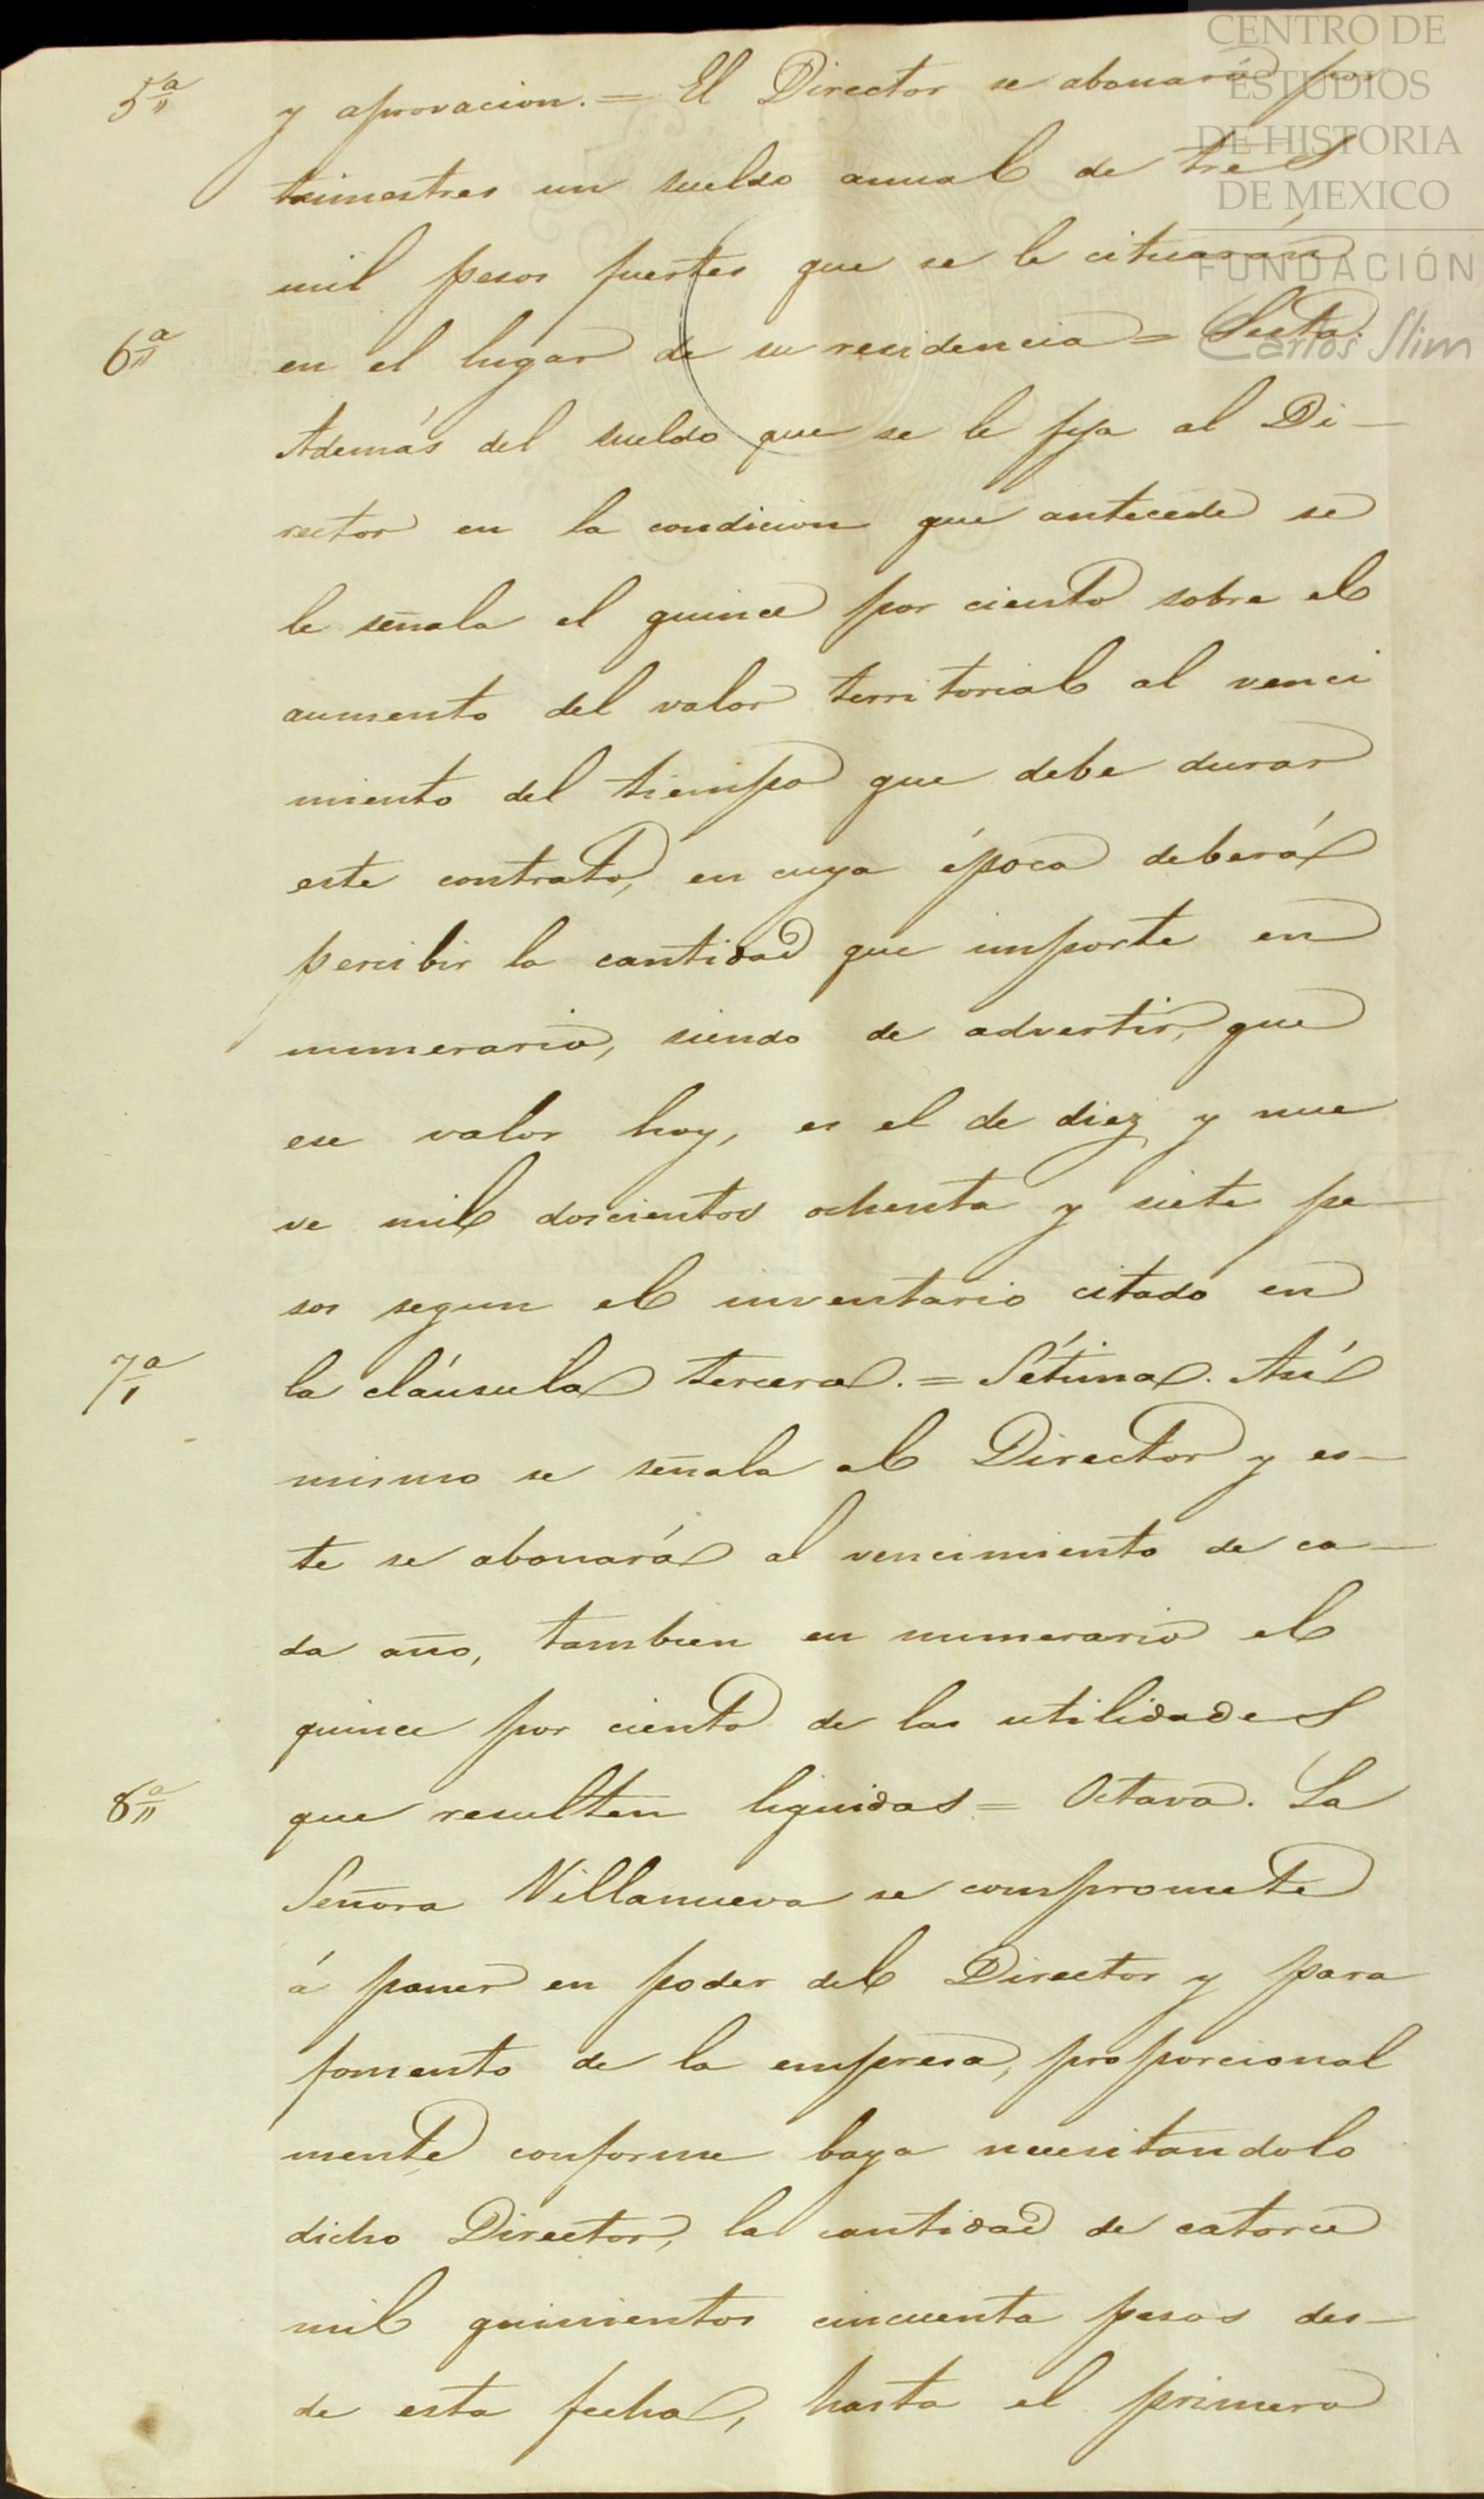 CENTRO DE
ESTUDIOS
DE HISTORIA
DE MEXICO
FUNDACIÓN
Carlos Slim
5ª y aprovacion. = El Director se abonará por
trimestres un sueldo anual de tres
mil pesos fuertes que se le cituarán
6ª en el lugar de su residencia = Sesta.
Además del sueldo que se le fija al Di-
rector en la condicion que antecede se
le señala el quince por ciento sobre el
aumento del valor territorial al venci
miento del tiempo que debe durar
este contrato, en cuya época deberá
percibir la cantidad que importe en
numerario, siendo de advertir, que
ese valor hoy, es el de diez y nue
ve mil doscientos ochenta y siete pe-
sos segun el inventario citado en
7ª la cláusula tercera. = Sétima. Así
mismo se señala al Director y es-
te se abonará al vencimiento de ca-
da año, tambien en numerario el
quince por ciento de las utilidades
8ª que resulten liquidas = Octava. La
Señora Villanueva se compromete
á poner en poder del Director y para
fomento de la empresa, proporcional
mente conforme baya necesitandolo
dicho Director, la cantidad de catorce
mil quinientos cincuenta pesos des-
de esta fecha, hasta el primero